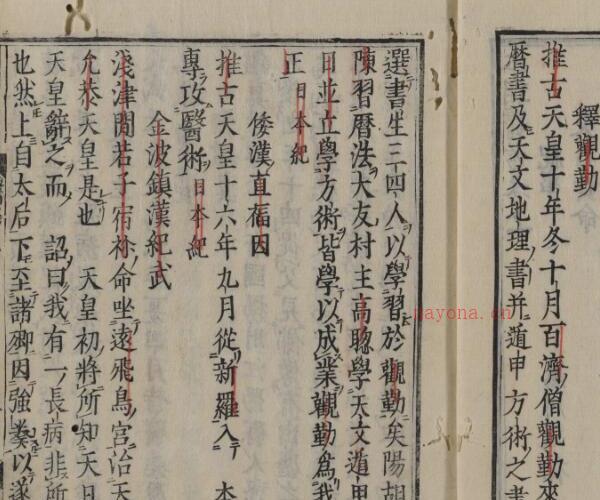 釋觀勒
推古天皇十年冬十月百濟僧觀勒來
曆書及天文地理書并遁甲方術之書
選書生三四人以學習於觀勒矣陽胡
陳習曆法大友村主高聰學天文遁甲
日並立學方術皆學以成業觀勒爲我
正日本紀
倭漢直福因
推古天皇十六年九月從新羅人本
專攻醫術日本紀
金波鎮漢紀武
淺津間若子宿祢命坐遠飛鳥宮治天
允恭天皇是也天皇初將所知天日
天皇辭之而詔曰我有一長病非所
也然上自太后下至諸卿因強奏以遂
nayona.cn